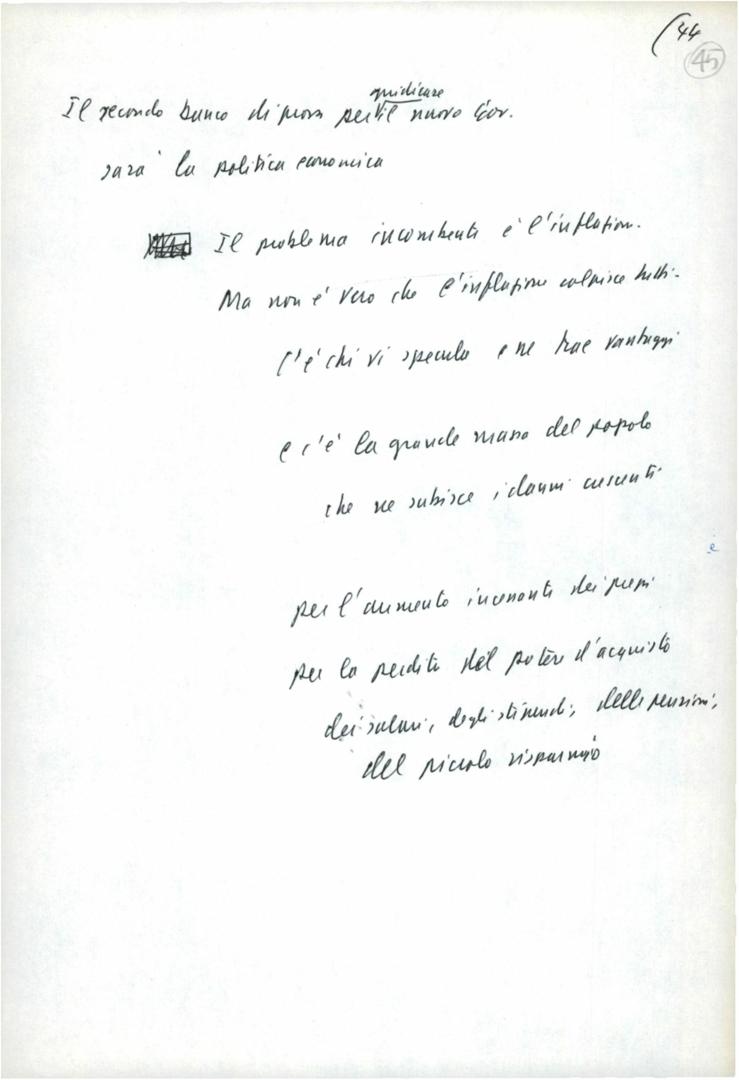 (44
45
giudicare
Il secondo banco di prova per il nuovo Gov.
sarà la politica economica
Il problema incombente è l'inflazion.
Ma non è vero che l'inflazione colpisce tutti.
C'è chi vi specula e ne trae vantaggi
e c'è la grande massa del popolo
che ne subisce i danni crescenti
e
per l'aumento incessante dei prezzi
per la perdita del potere d'acquisto
dei salari, degli stipendi, delle pensioni,
del piccolo risparmio